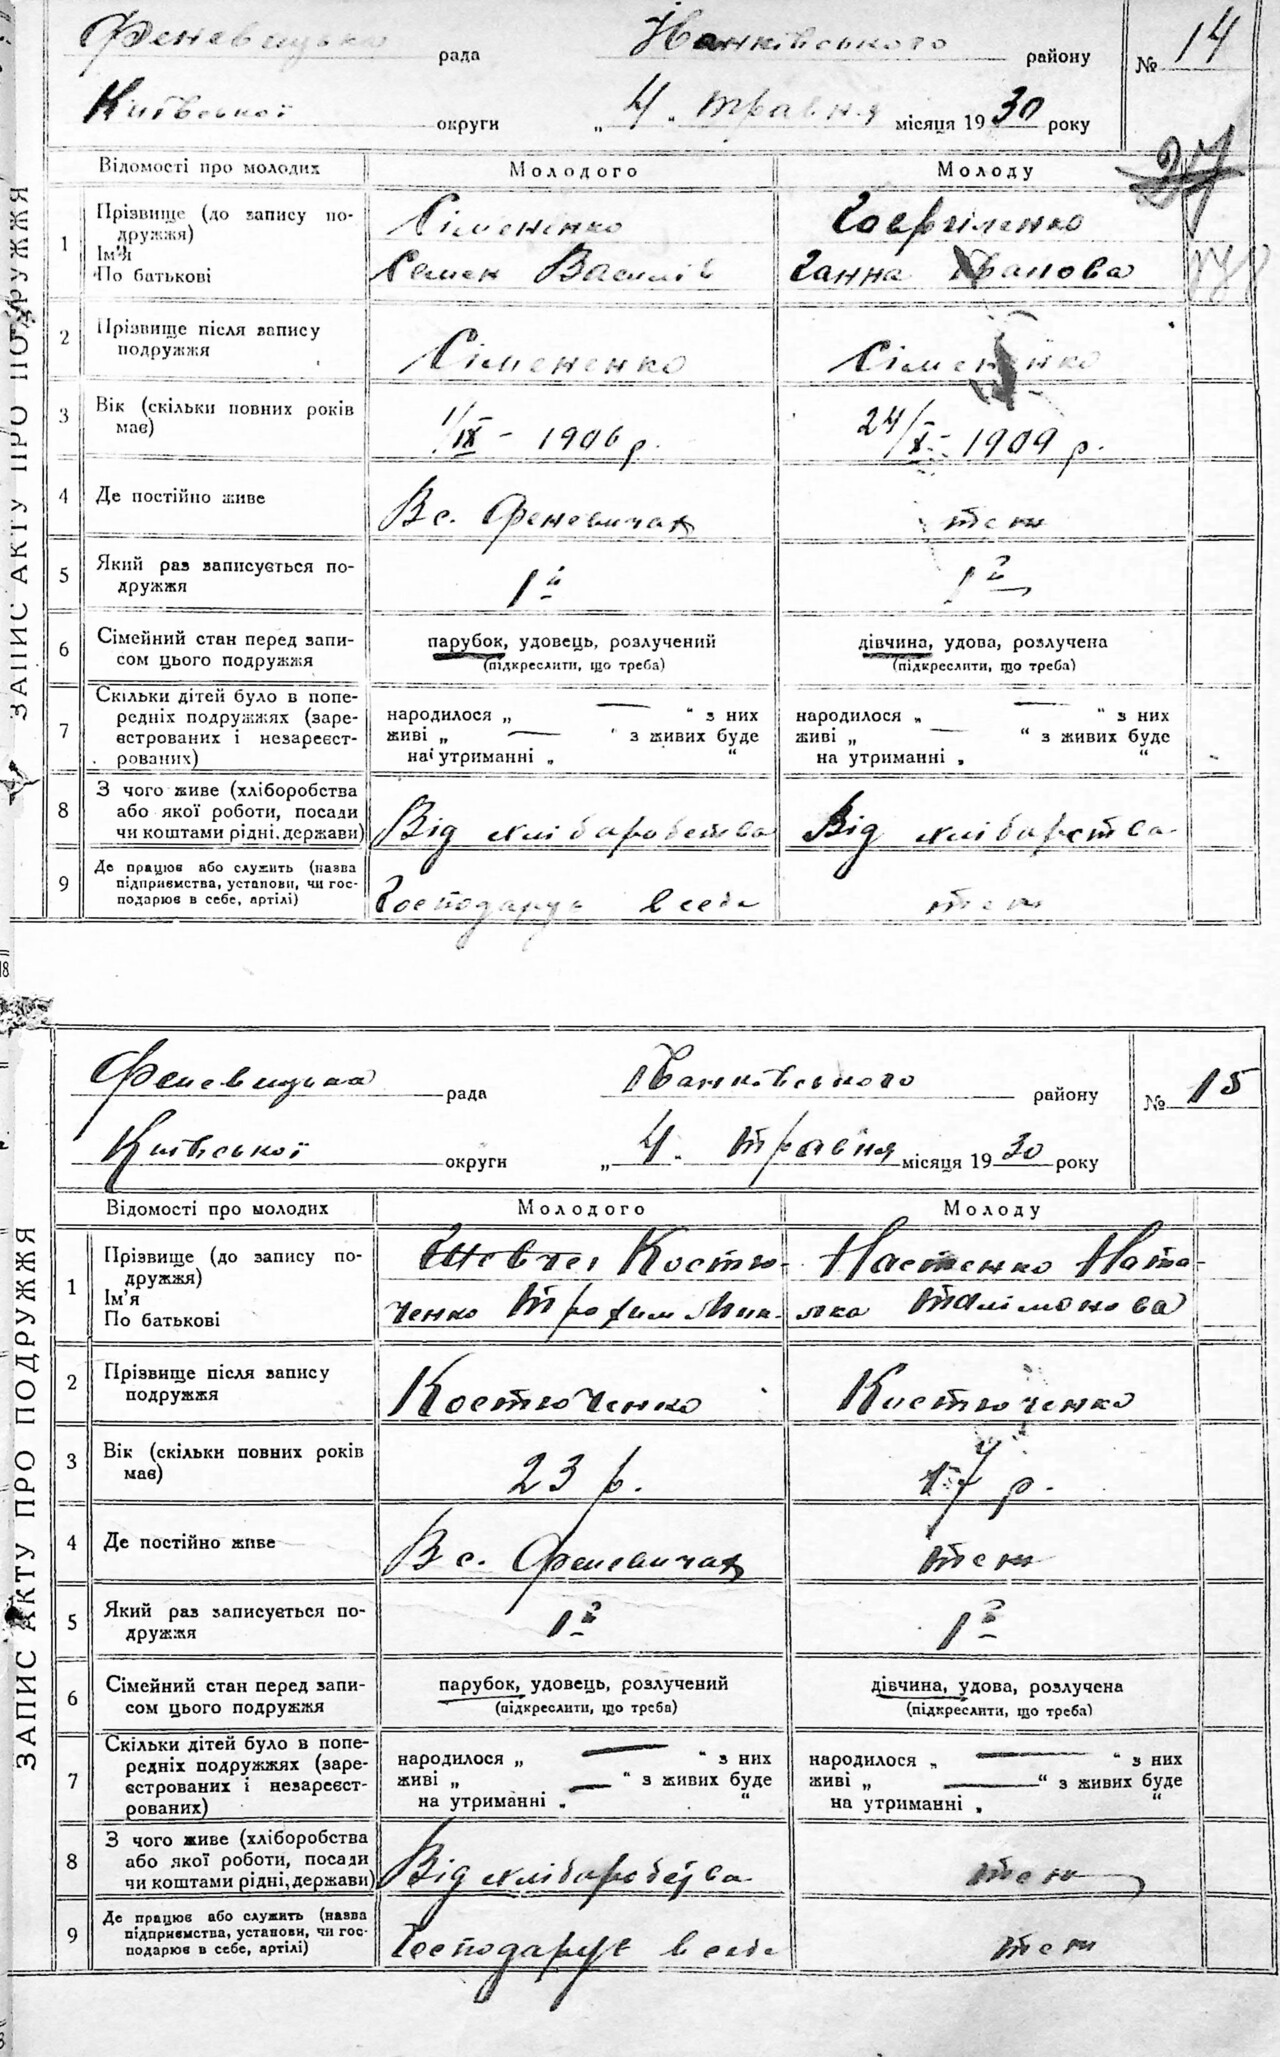 Феневицька рада Иванківського району № 14
Київської округи „ 4 „ травня місяця 1930 року
27
ЗАПИС АКТУ ПРО ПОДРУЖЖЯ
Відомості про молодих Молодого Молоду
1 Прізвище (до запису по- Сімененко Гаврiленко
дружжя)
Ім'я
По батькові Семен Василів Ганна Иванова
2 Прізвище після запису
подружжя Сімененко Сімененко
3 Вік (скільки повних років
має) 1/IX – 1906 р. 24/X – 1909 р.
4 Де постійно живе В с. Феневичах теж
5 Який раз записується по-
дружжя 1й 1й
6 Сімейний стан перед запи- парубок, удовець, розлучений дівчина, удова, розлучена
сом цього подружжя (підкреслити, що треба) (підкреслити, що треба)
7 Скільки дітей було в попе-
редніх подружжях (заре- народилося „ — “ з них народилося „ — “ з них
єстрованих і незареєст- живі „ — “ з живих буде живі „ — “ з живих буде
рованих) на утриманні „ “ на утриманні „ “
8 З чого живе (хліборобства
або якої роботи, посади
чи коштами рідні, держави) Від хліборобства Від хліборства
9 Де працює або служить (назва
підприємства, установи, чи гос-
подарює в себе, артілі) Господарує в себе теж
18
Феневицька рада Иванківського району № 15
Київської округи „ 4 „ травня місяця 1930 року
ЗАПИС АКТУ ПРО ПОДРУЖЖЯ
Відомості про молодих Молодого Молоду
1 Прізвище (до запису по- Костю- Настенко Ната-
дружжя)
Ім'я
По батькові ченко Трохим Мик- лка Талімонова
2 Прізвище після запису
подружжя Костюченко Костюченко
3 Вік (скільки повних років
має) 23 р. 17 р.
4 Де постійно живе В с. Феневичах теж
5 Який раз записується по-
дружжя 1й 1й
6 Сімейний стан перед запи- парубок, удовець, розлучений дівчина, удова, розлучена
сом цього подружжя (підкреслити, що треба) (підкреслити, що треба)
7 Скільки дітей було в попе-
редніх подружжях (заре- народилося „ — “ з них народилося „ — “ з них
єстрованих і незареєст- живі „ — “ з живих буде живі „ — “ з живих буде
рованих) на утриманні „ “ на утриманні „ “
8 З чого живе (хліборобства
або якої роботи, посади
чи коштами рідні, держави) Від хліборобства теж
9 Де працює або служить (назва
підприємства, установи, чи гос-
подарює в себе, артілі) Господарує в себе теж